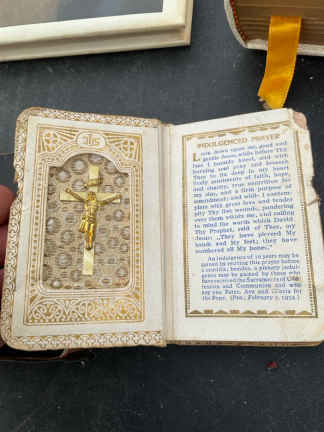 IHS
INDULGENCED PRAYER
Look down upon me, good and
gentle Jesus, while before Thy
face I humbly kneel, and with
burning soul pray and beseech
Thee to fix deep in my heart
lively sentiments of faith, hope,
and charity, true contrition for
my sins, and a firm purpose of
amendment; and while I contem-
plate with great love and tender
pity Thy five wounds, pondering
over them within me, and calling
to mind the words which David
Thy Prophet, said of Thee, my
Jesus: „They have pierced My
hands and My feet; they have
numbered all My bones."
An indulgence of 10 years may be
gained by reciting this prayer before
a crucifix; besides, a plenary indul-
gence may be gained by those who
have received the Sacraments of
fession and Communion and who
say one Pater, Ave and Gloria for
the Pope. (Pen., February 2, 1934.)